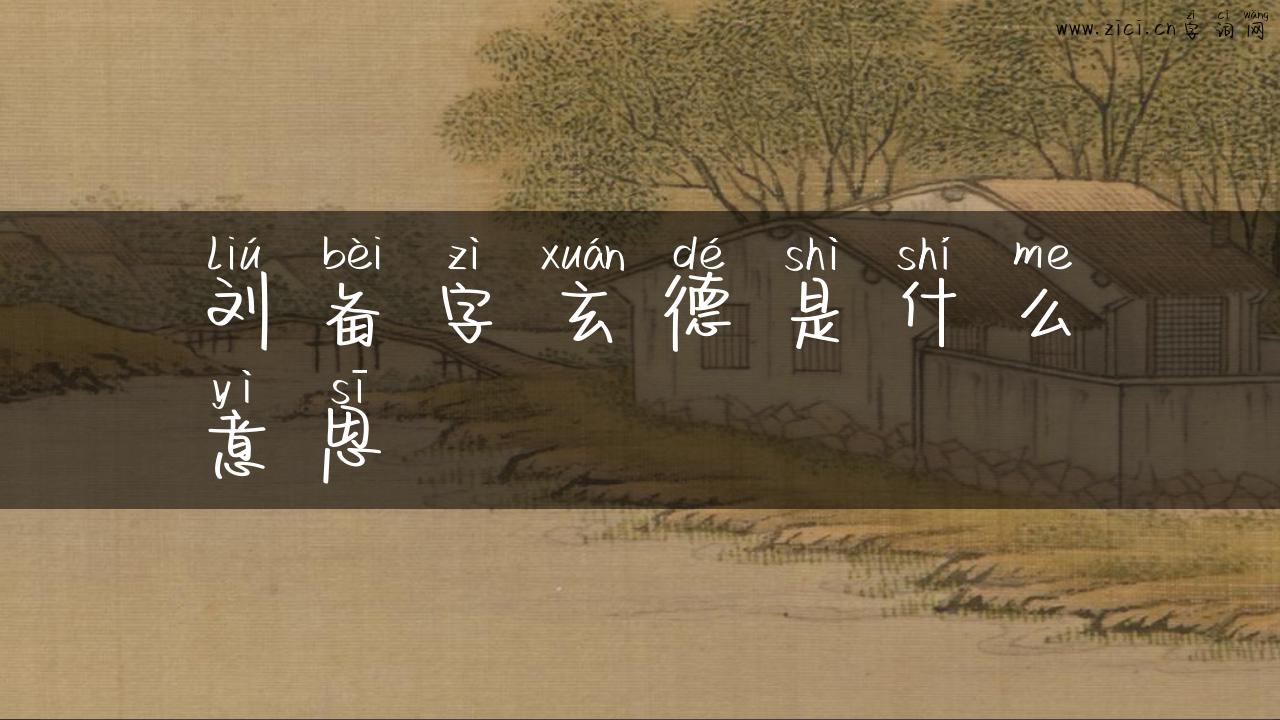 www.zici.cn字词网
zì cí wǎng
liú bèi zì xuán dé shì shí me
刘备字玄德是什么
yì sī
意思